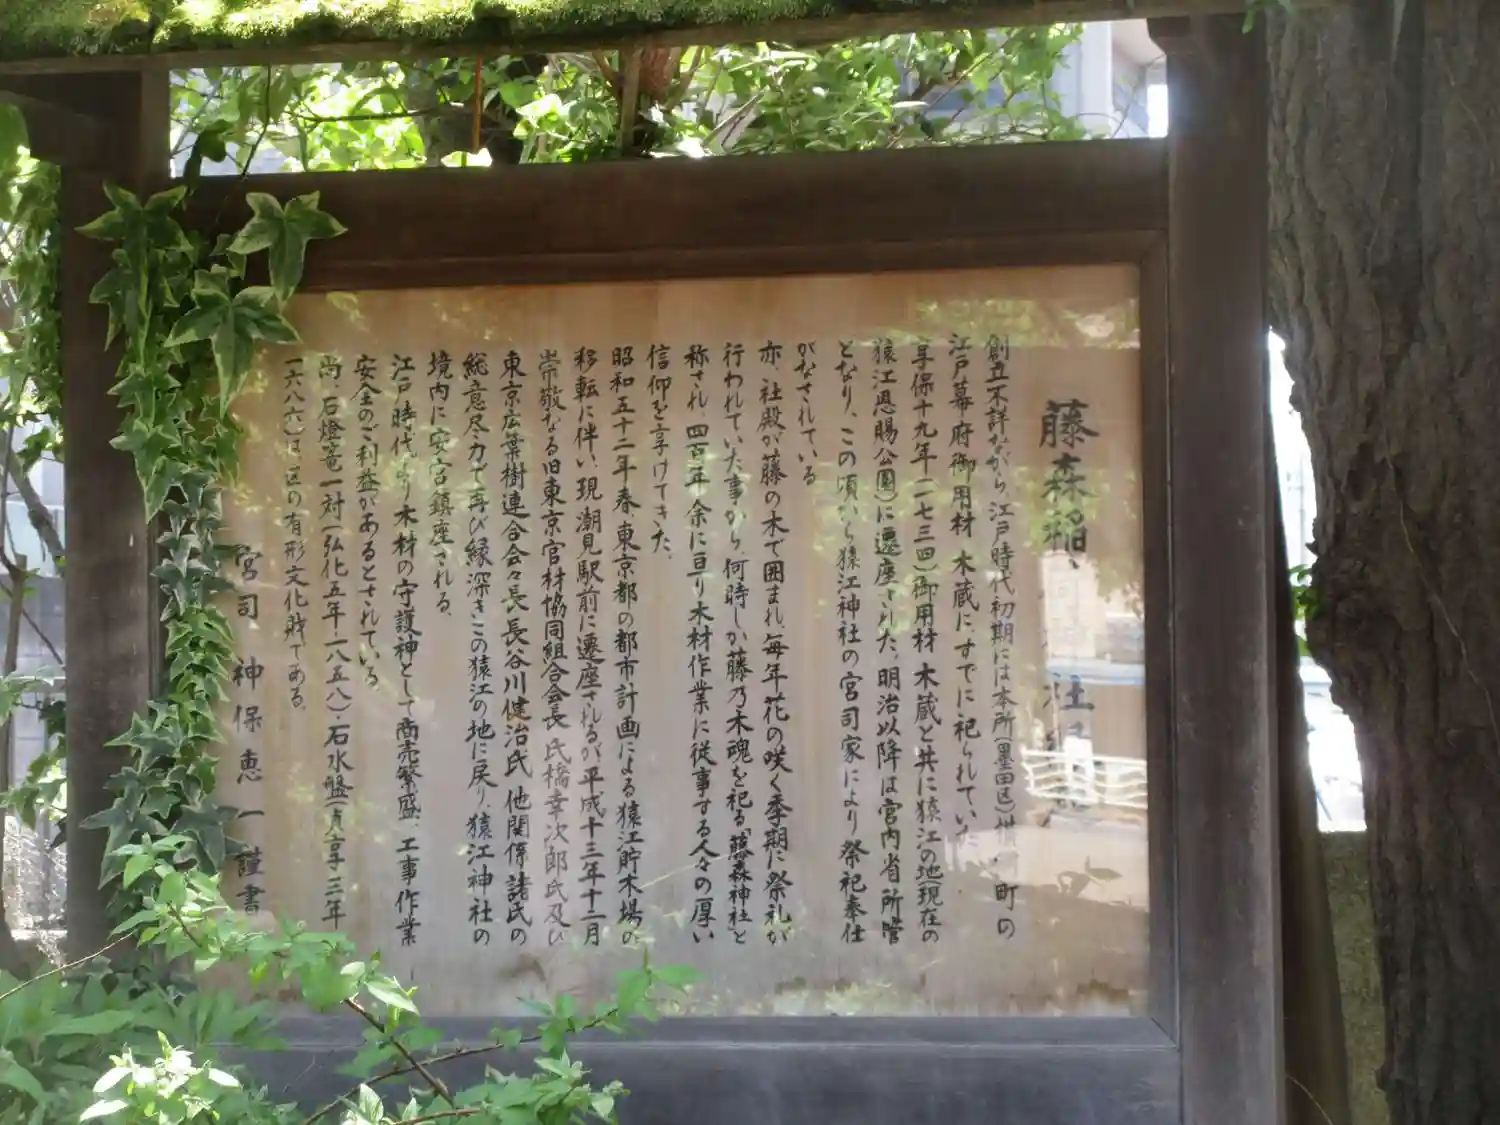 藤森稲 社
創立不詳ながら、江戸時代初期には本所(墨田区) 町の
江戸幕府御用材 木蔵に、すでに祀られていた
享保十九年(一七三四)御用材 木蔵と共に猿江の地(現在の
猿江恩賜公園)に遷座された。明治以降は宮内省所管
となり、この頃から猿江神社の宮司家により祭祀奉仕
がなされている
亦、社殿が藤の木で囲まれ、毎年花の咲く季期に祭礼が
行われていた事から、何時しか藤乃木魂を祀る「藤森神社」と
称され、四百年余に亘り木材作業に従事する人々の厚い
信仰を享けてきた。
昭和五十二年春、東京都の都市計画による猿江貯木場の
移転に伴い、現潮見駅前に遷座されるが平成十三年十二月
崇敬なる旧東京官材協同組合会長 氏橋幸次郎氏及び
東京広葉樹連合会々長長谷川健治氏 他関係諸氏の
総意尽力で再び縁深きこの猿江の地に戻り、猿江神社の
境内に安宮鎮座される。
江戸時代より木材の守護神として商売繁盛、工事作業
安全のご利益があるとされている
尚、石燈篭一対(弘化五年・一八五八)・石水盤(貞享三年
一六八六)は 区の有形文化財である。
宮司 神保恵一 謹書